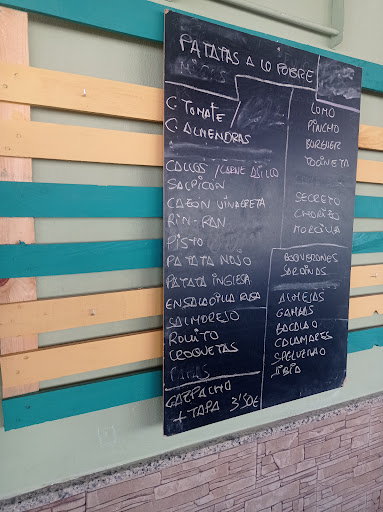 PATATAS A LO POBRE
MIGAS
C. TOMATE
C. ALMENDRAS
CALLOS / CARNE AJILLO
SALPICON
CAZON VINAGRETA
RIN-RAN
PISTO
PATATA MOJO
PATATA INGLESA
ENSALADILLA RUSA
SALMOREJO
ROLLITO
CROQUETAS
GAZPACHO
+ TAPA 3'50€
LOMO
PINCHO
BURGUER
TOCINETA
SECRETO
CHORIZO
MORCILLA
BOQUERONES
SARDINAS
ALMEJAS
GAMBAS
BACALAO
CALAMARES
JIBIA